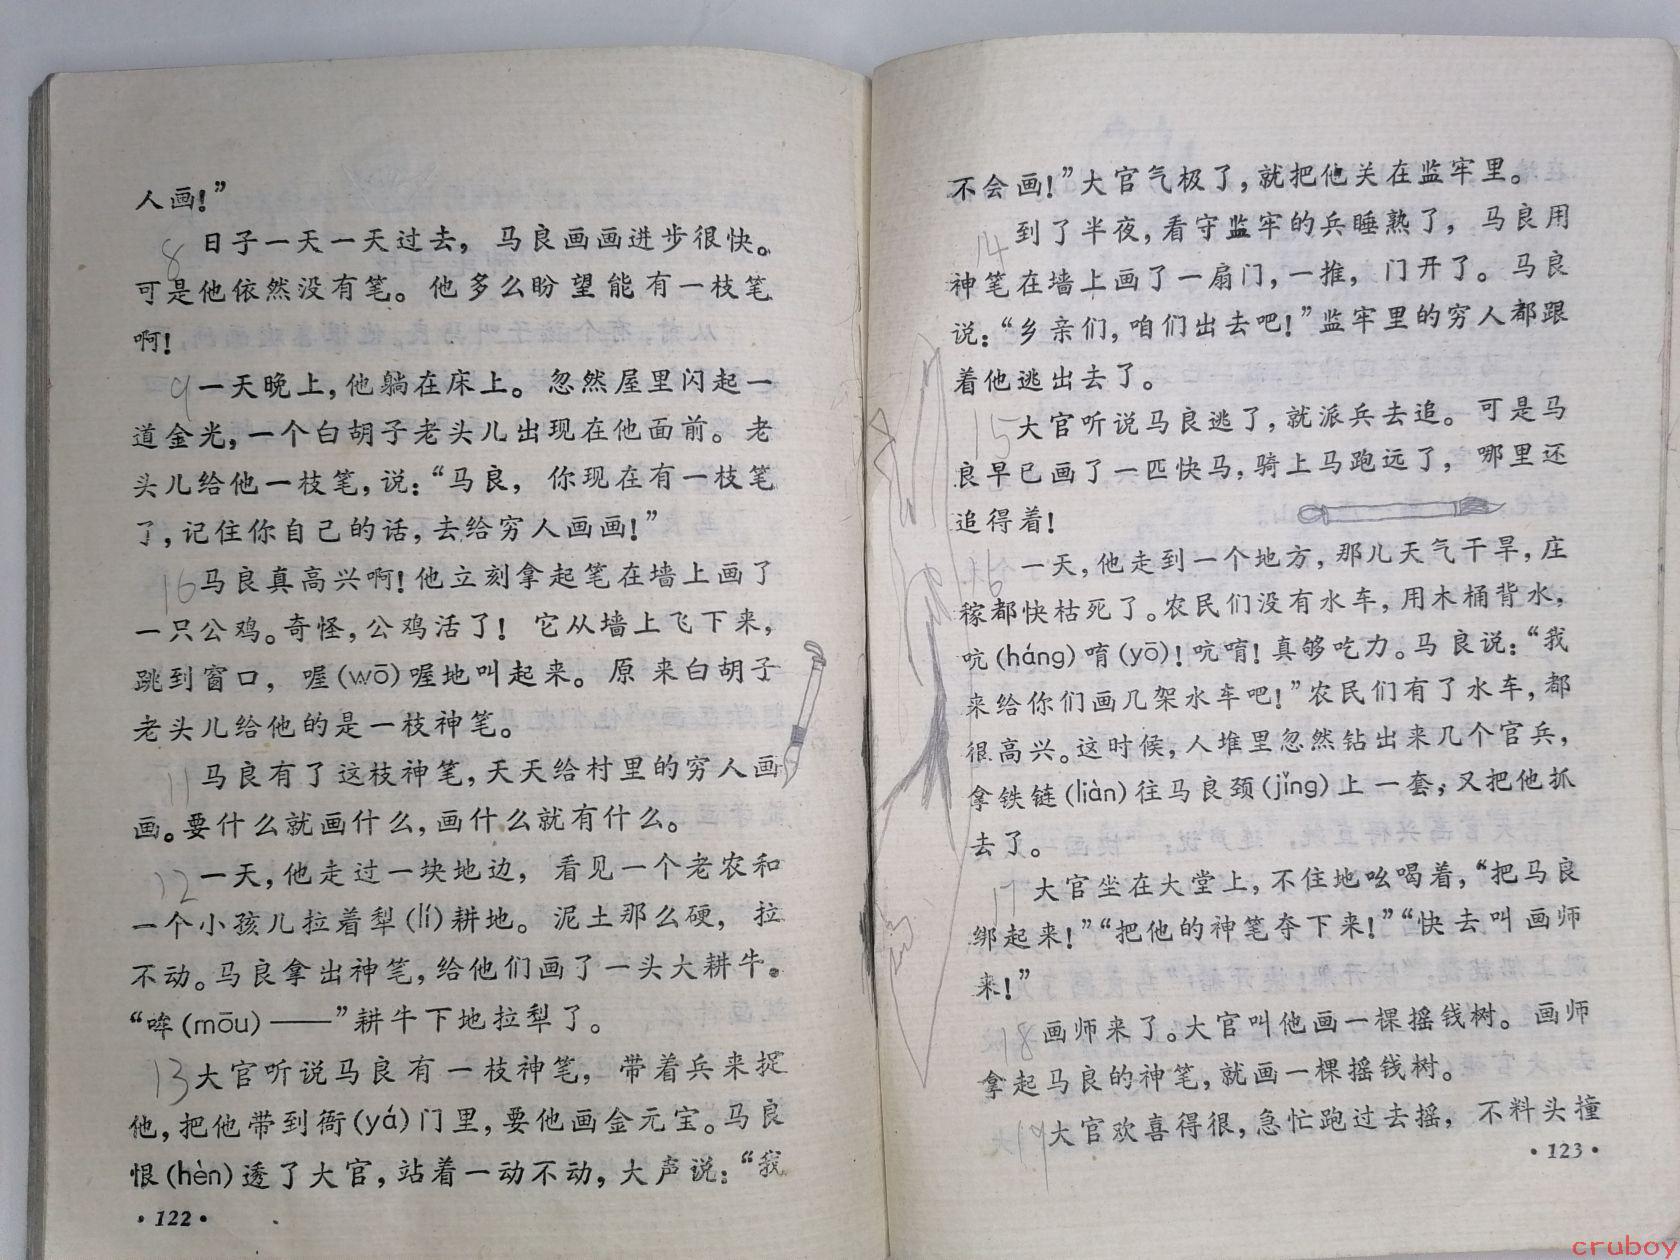 人画！”
8 日子一天一天过去，马良画画进步很快。
可是他依然没有笔。他多么盼望能有一枝笔
啊！
9 一天晚上，他躺在床上。忽然屋里闪起一
道金光，一个白胡子老头儿出现在他面前。老
头儿给他一枝笔，说：“马良，你现在有一枝笔
了，记住你自己的话，去给穷人画画！”
10 马良真高兴啊！他立刻拿起笔在墙上画了
一只公鸡。奇怪，公鸡活了！它从墙上飞下来，
跳到窗口，喔(wō)喔地叫起来。原来白胡子
老头儿给他的是一枝神笔。
11 马良有了这枝神笔，天天给村里的穷人画
画。要什么就画什么，画什么就有什么。
12 一天，他走过一块地边，看见一个老农和
一个小孩儿拉着犁(lí)耕地。泥土那么硬，拉
不动。马良拿出神笔，给他们画了一头大耕牛。
“哞(mōu)——”耕牛下地拉犁了。
13 大官听说马良有一枝神笔，带着兵来捉
他，把他带到衙(yá)门里，要他画金元宝。马良
恨(hèn)透了大官，站着一动不动，大声说：“我
·122·
不会画！”大官气极了，就把他关在监牢里。
14 到了半夜，看守监牢的兵睡熟了，马良用
神笔在墙上画了一扇门，一推，门开了。马良
说：“乡亲们，咱们出去吧！”监牢里的穷人都跟
着他逃出去了。
15 大官听说马良逃了，就派兵去追。可是马
良早已画了一匹快马，骑上马跑远了，哪里还
追得着！
16 一天，他走到一个地方，那儿天气干旱，庄
稼都快枯死了。农民们没有水车，用木桶背水，
吭(háng)唷(yō)！吭唷！真够吃力。马良说：“我
来给你们画几架水车吧！”农民们有了水车，都
很高兴。这时候，人堆里忽然钻出来几个官兵，
拿铁链(liàn)往马良颈(jǐng)上一套，又把他抓
去了。
17 大官坐在大堂上，不住地吆喝着，“把马良
绑起来！”“把他的神笔夺下来！”“快去叫画师
来！”
18 画师来了。大官叫他画一棵摇钱树。画师
拿起马良的神笔，就画一棵摇钱树。
19 大官欢喜得很，急忙跑过去摇，不料头撞
·123·
cruboy